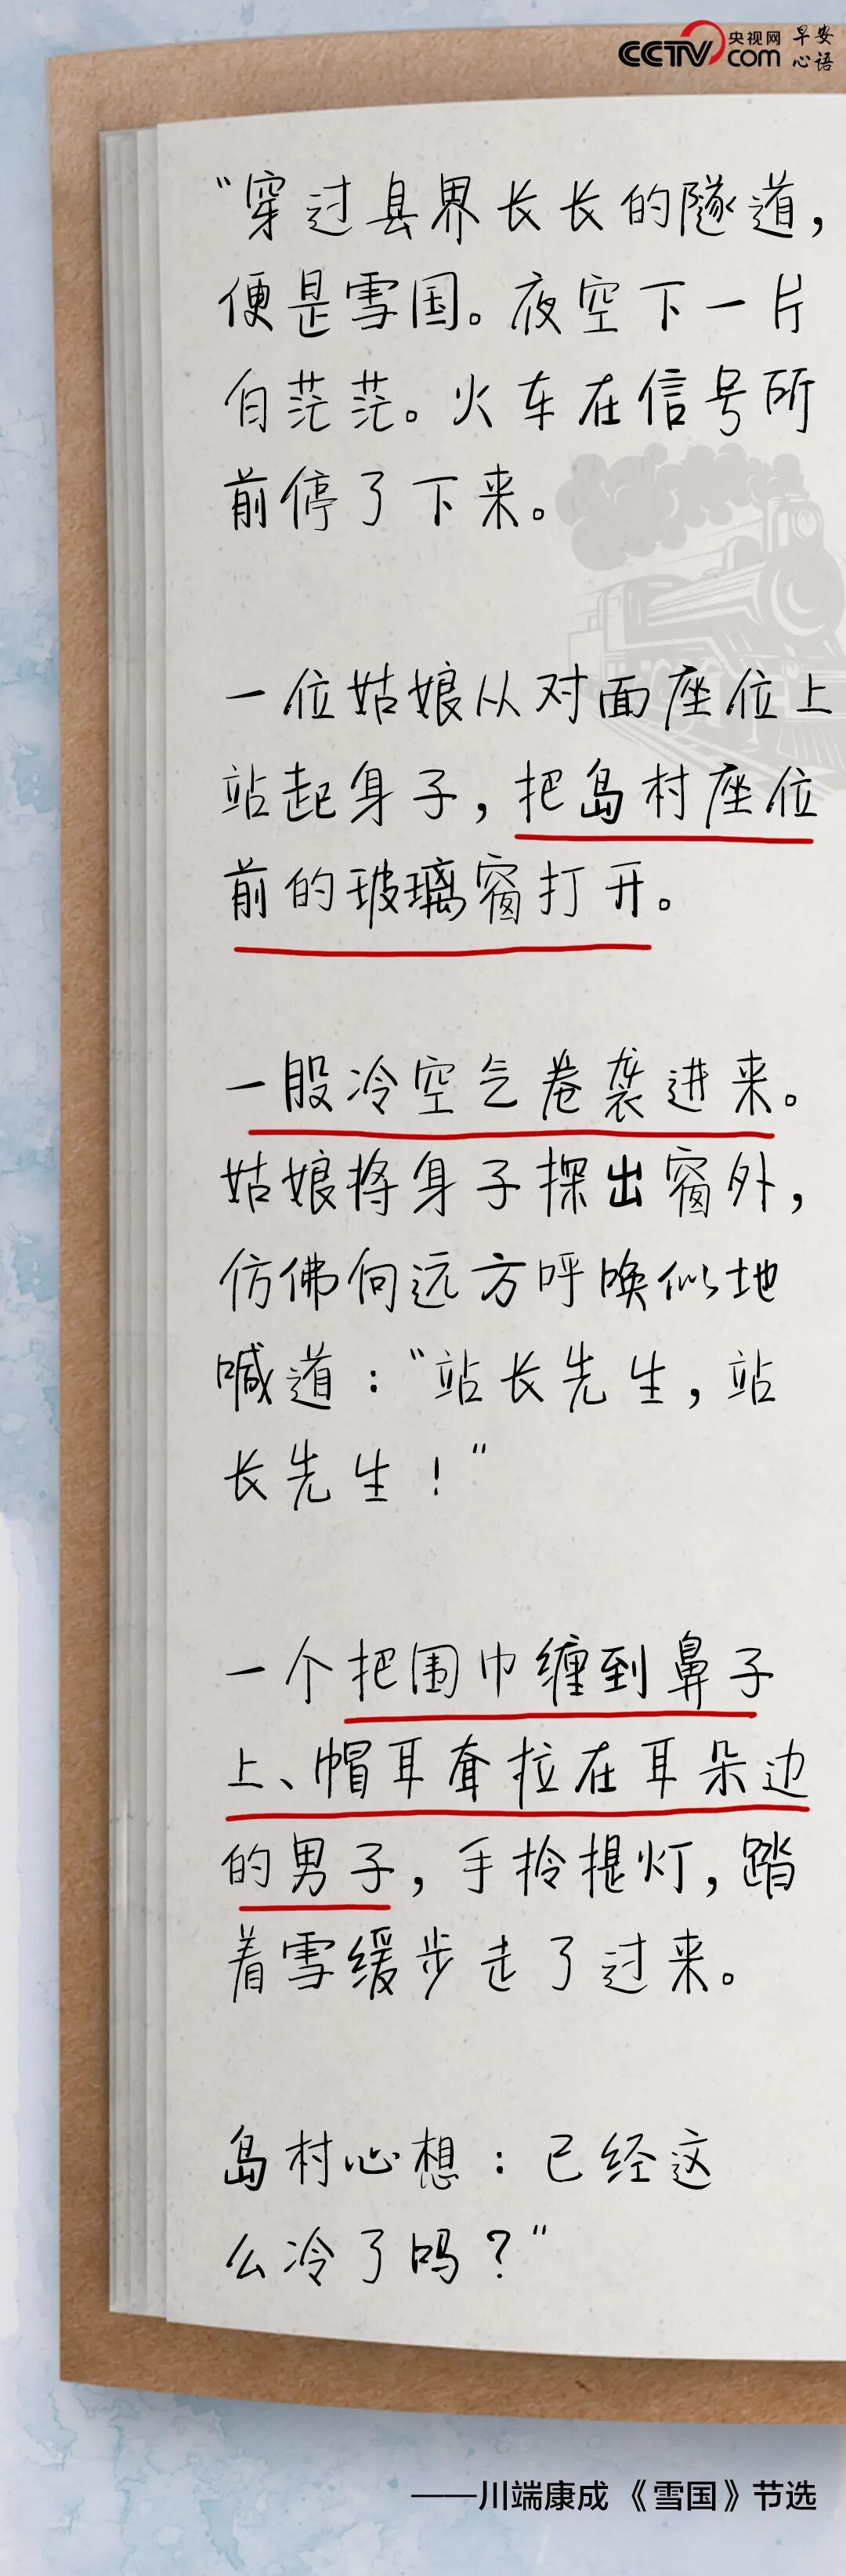 CCTV.com 央视网 早安心语
“穿过县界长长的隧道，
便是雪国。夜空下一片
白茫茫。火车在信号所
前停了下来。
一位姑娘从对面座位上
站起身子，把岛村座位
前的玻璃窗打开。
一股冷空气卷袭进来。
姑娘将身子探出窗外，
仿佛向远方呼唤似地
喊道：“站长先生，站
长先生！”
一个把围巾缠到鼻子
上、帽耳耷拉在耳朵边
的男子，手拎提灯，踏
着雪缓步走了过来。
岛村心想：已经这
么冷了吗？”
——川端康成《雪国》节选